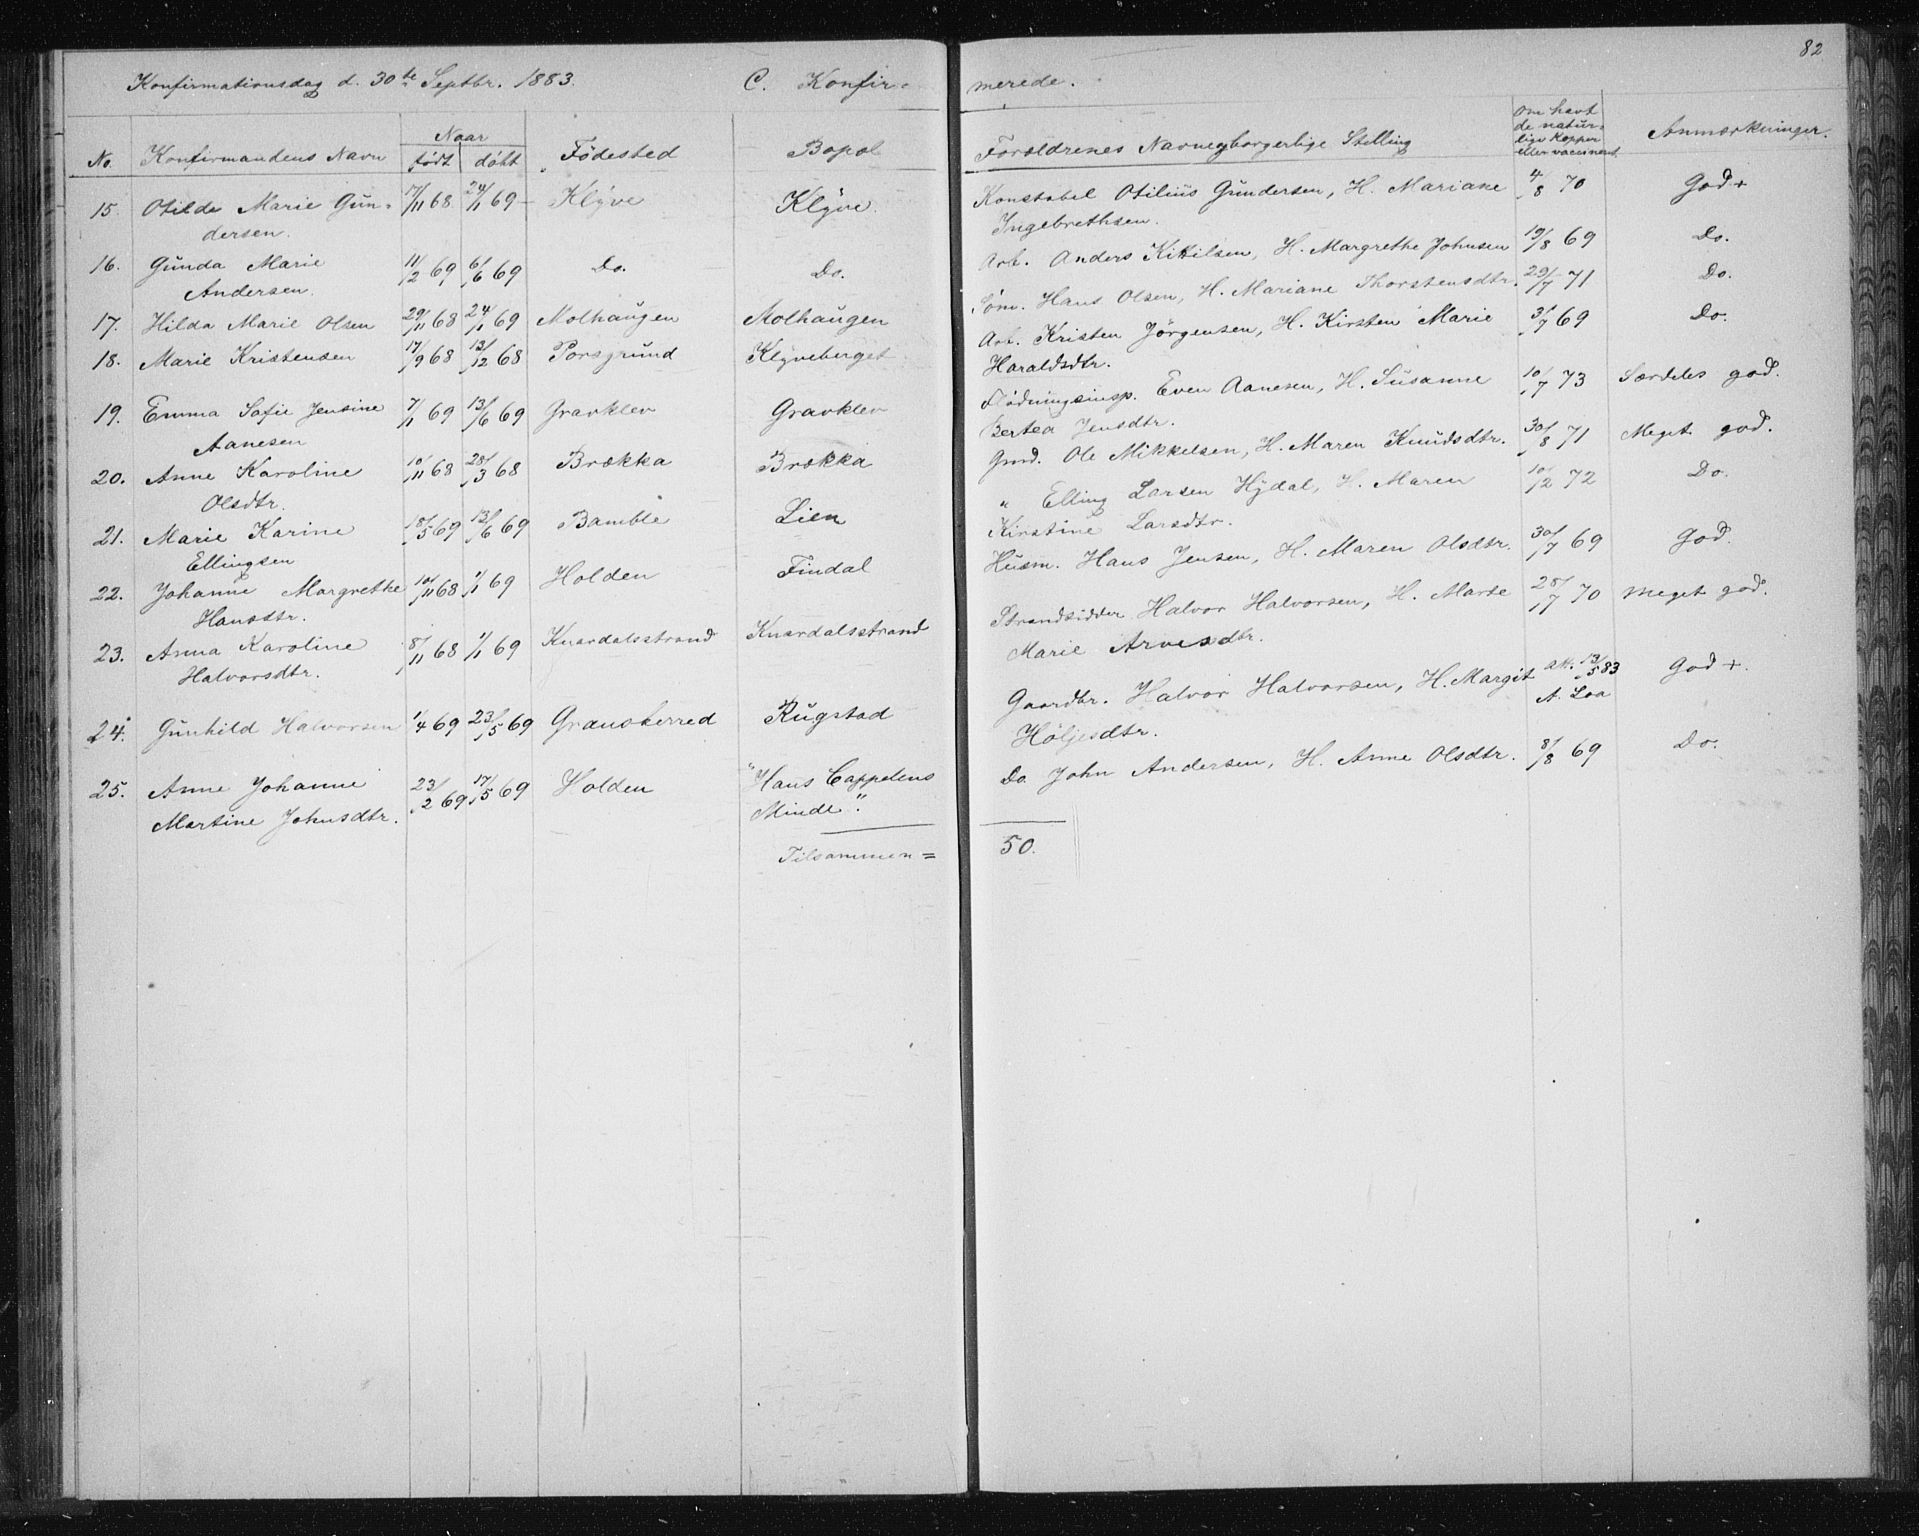 82
Konfirmationsdag d. 30te Septbr. 1883. C. Konfir-
merede.
No. Konfirmandens Navn Naar født døbt Fødested Bopæl
Forældrenes Navne og borgerlige Stilling Om havt de naturlige Kopper eller vaccineret Anmærkninger.
15. Otilde Marie Gun- 17/11 68 24/1 69 Klyve Klyve.
dersen.
16. Gunda Marie 11/2 69 6/6 69 Do. Do.
Andersen.
17. Hilda Marie Olsen 29/11 68 24/1 69 Molhaugen Molhaugen
18. Marie Kristensen 17/9 68 13/12 68 Porsgrund Klyveberget
19. Emma Sofie Jensine 7/1 69 13/6 69 Gravklev Gravklev
Aanesen
20. Anne Karoline 10/11 68 28/3 68 Brække Brække
Olsdtr.
21. Marie Karine 18/5 69 13/6 69 Bamble Lien
Ellingsen
22. Johanne Margrethe 10/11 68 1/1 69 Holden Findal
Hansdtr.
23. Anna Karoline 8/11 68 1/1 69 Knardalsstrand Knardalsstrand
Halvorsdtr.
24. Gunhild Halvorsen 1/4 69 23/5 69 Gransherred Rugstad
25. Anne Johanne 23/2 69 17/5 69 Holden "Hans Cappelens
Martine Johnsdtr. Minde".
Tilsammen =
Konstabel Otilius Gundersen, H. Mariane 4/8 70 God +
Ingebrethsen.
Arb. Anders Kittilsen, H. Margrethe Johnsen 19/8 69 Do.
Søm. Hans Olsen, H. Mariane Thorstensdtr. 29/7 71 Do.
Arb. Kristen Jörgensen, H. Kirsten Marie 31/7 69 Do.
Haraldsdtr.
Flødningsinsp. Even Aanesen, H. Susanne 10/7 73 Særdeles god.
Bertea Jensdtr.
Grd. Ole Mikkelsen, H. Maren Knudsdtr. 30/8 71 Meget god.
" Elling Larsen Hydal, H. Maren 10/2 72 Do.
Kirstine Larsdtr.
Husm. Hans Jensen, H. Maren Olsdtr. 30/7 69 God.
Strandsidder Halvor Halvorsen, H. Marte 28/7 70 Meget god.
Marie Arvesdtr.
Gaardbr. Halvor Halvorsen, H. Margit att. 13/5 83 God +.
Höljesdtr. A. Loa
Do John Andersen, H. Anne Olsdtr. 8/8 69 Do.
50.